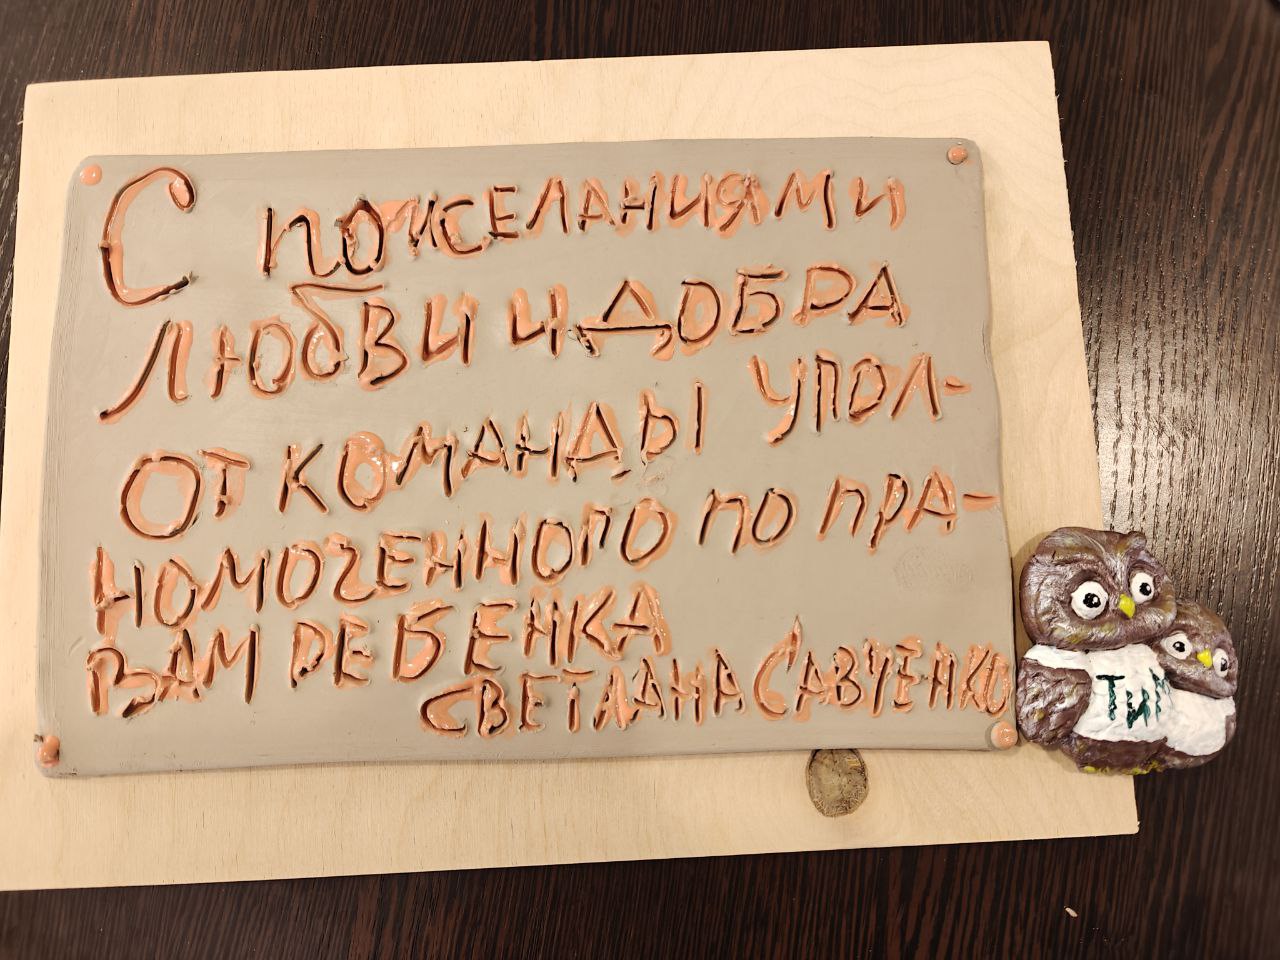 С ПОЖЕЛАНИЯМИ
ЛЮБВИ И ДОБРА
ОТ КОМАНДЫ УПОЛ-
НОМОЧЕННОГО ПО ПРА-
ВАМ РЕБЕНКА
СВЕТЛАНА САВЧЕНКО
ТИМ